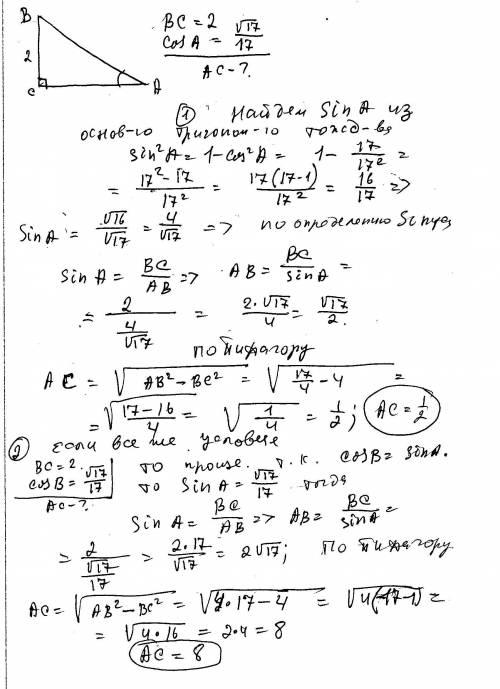 B
2
C
A
BC = 2
cos A = √17/17
AC - ?
① Найдем Sin A из
основ-го тригоном-го тожд-ва
sin²A = 1 - cos²A = 1 - 17/17² =
= (17² - 17)/17² = 17(17-1)/17² = 16/17 =>
Sin A = √16/√17 = 4/√17 => по определению Sinуса
Sin A = BC/AB => AB = BC/sin A =
= 2/(4/√17) = 2·√17/4 = √17/2.
по Пифагору
AC = √(AB² - BC²) = √(17/4 - 4) =
= √((17-16)/4) = √(1/4) = 1/2; AC = 1/2
② если все же условие
BC = 2.
cos B = √17/17
AC - ?
то проще. т.к. cos B = sin A.
то Sin A = √17/17 тогда
Sin A = BC/AB => AB = BC/sin A =
= 2/(√17/17) = 2·17/√17 = 2√17; По Пифагору
AC = √(AB² - BC²) = √(4·17 - 4) = √(4(17-1)) =
= √(4·16) = 2·4 = 8
AC = 8